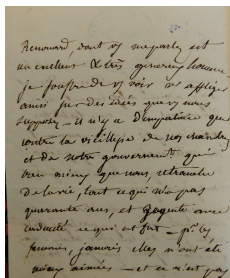 Renouard, dont vs me parlez est
un excellent & très généreux homme
je souffre de vs voir vs affliger
ainsi sur des idées que vs nous
supposez – il n'y a d'impatience que
contre la vieillesse de nos chambres
et de notre gouvernement qui
bien mieux que nous, retranche
de la vie, tout ce qui n'a pas
quarante ans, et avec
ce qui est fort – qt. les
femmes, jamais elles n'ont été
mieux aimées – et ce n'est pas